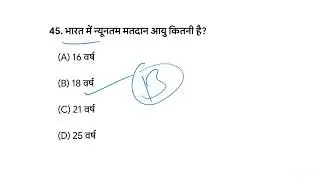 45. भारत में न्यूनतम मतदान आयु कितनी है?
(A) 16 वर्ष
(B) 18 वर्ष
B
(C) 21 वर्ष
(D) 25 वर्ष